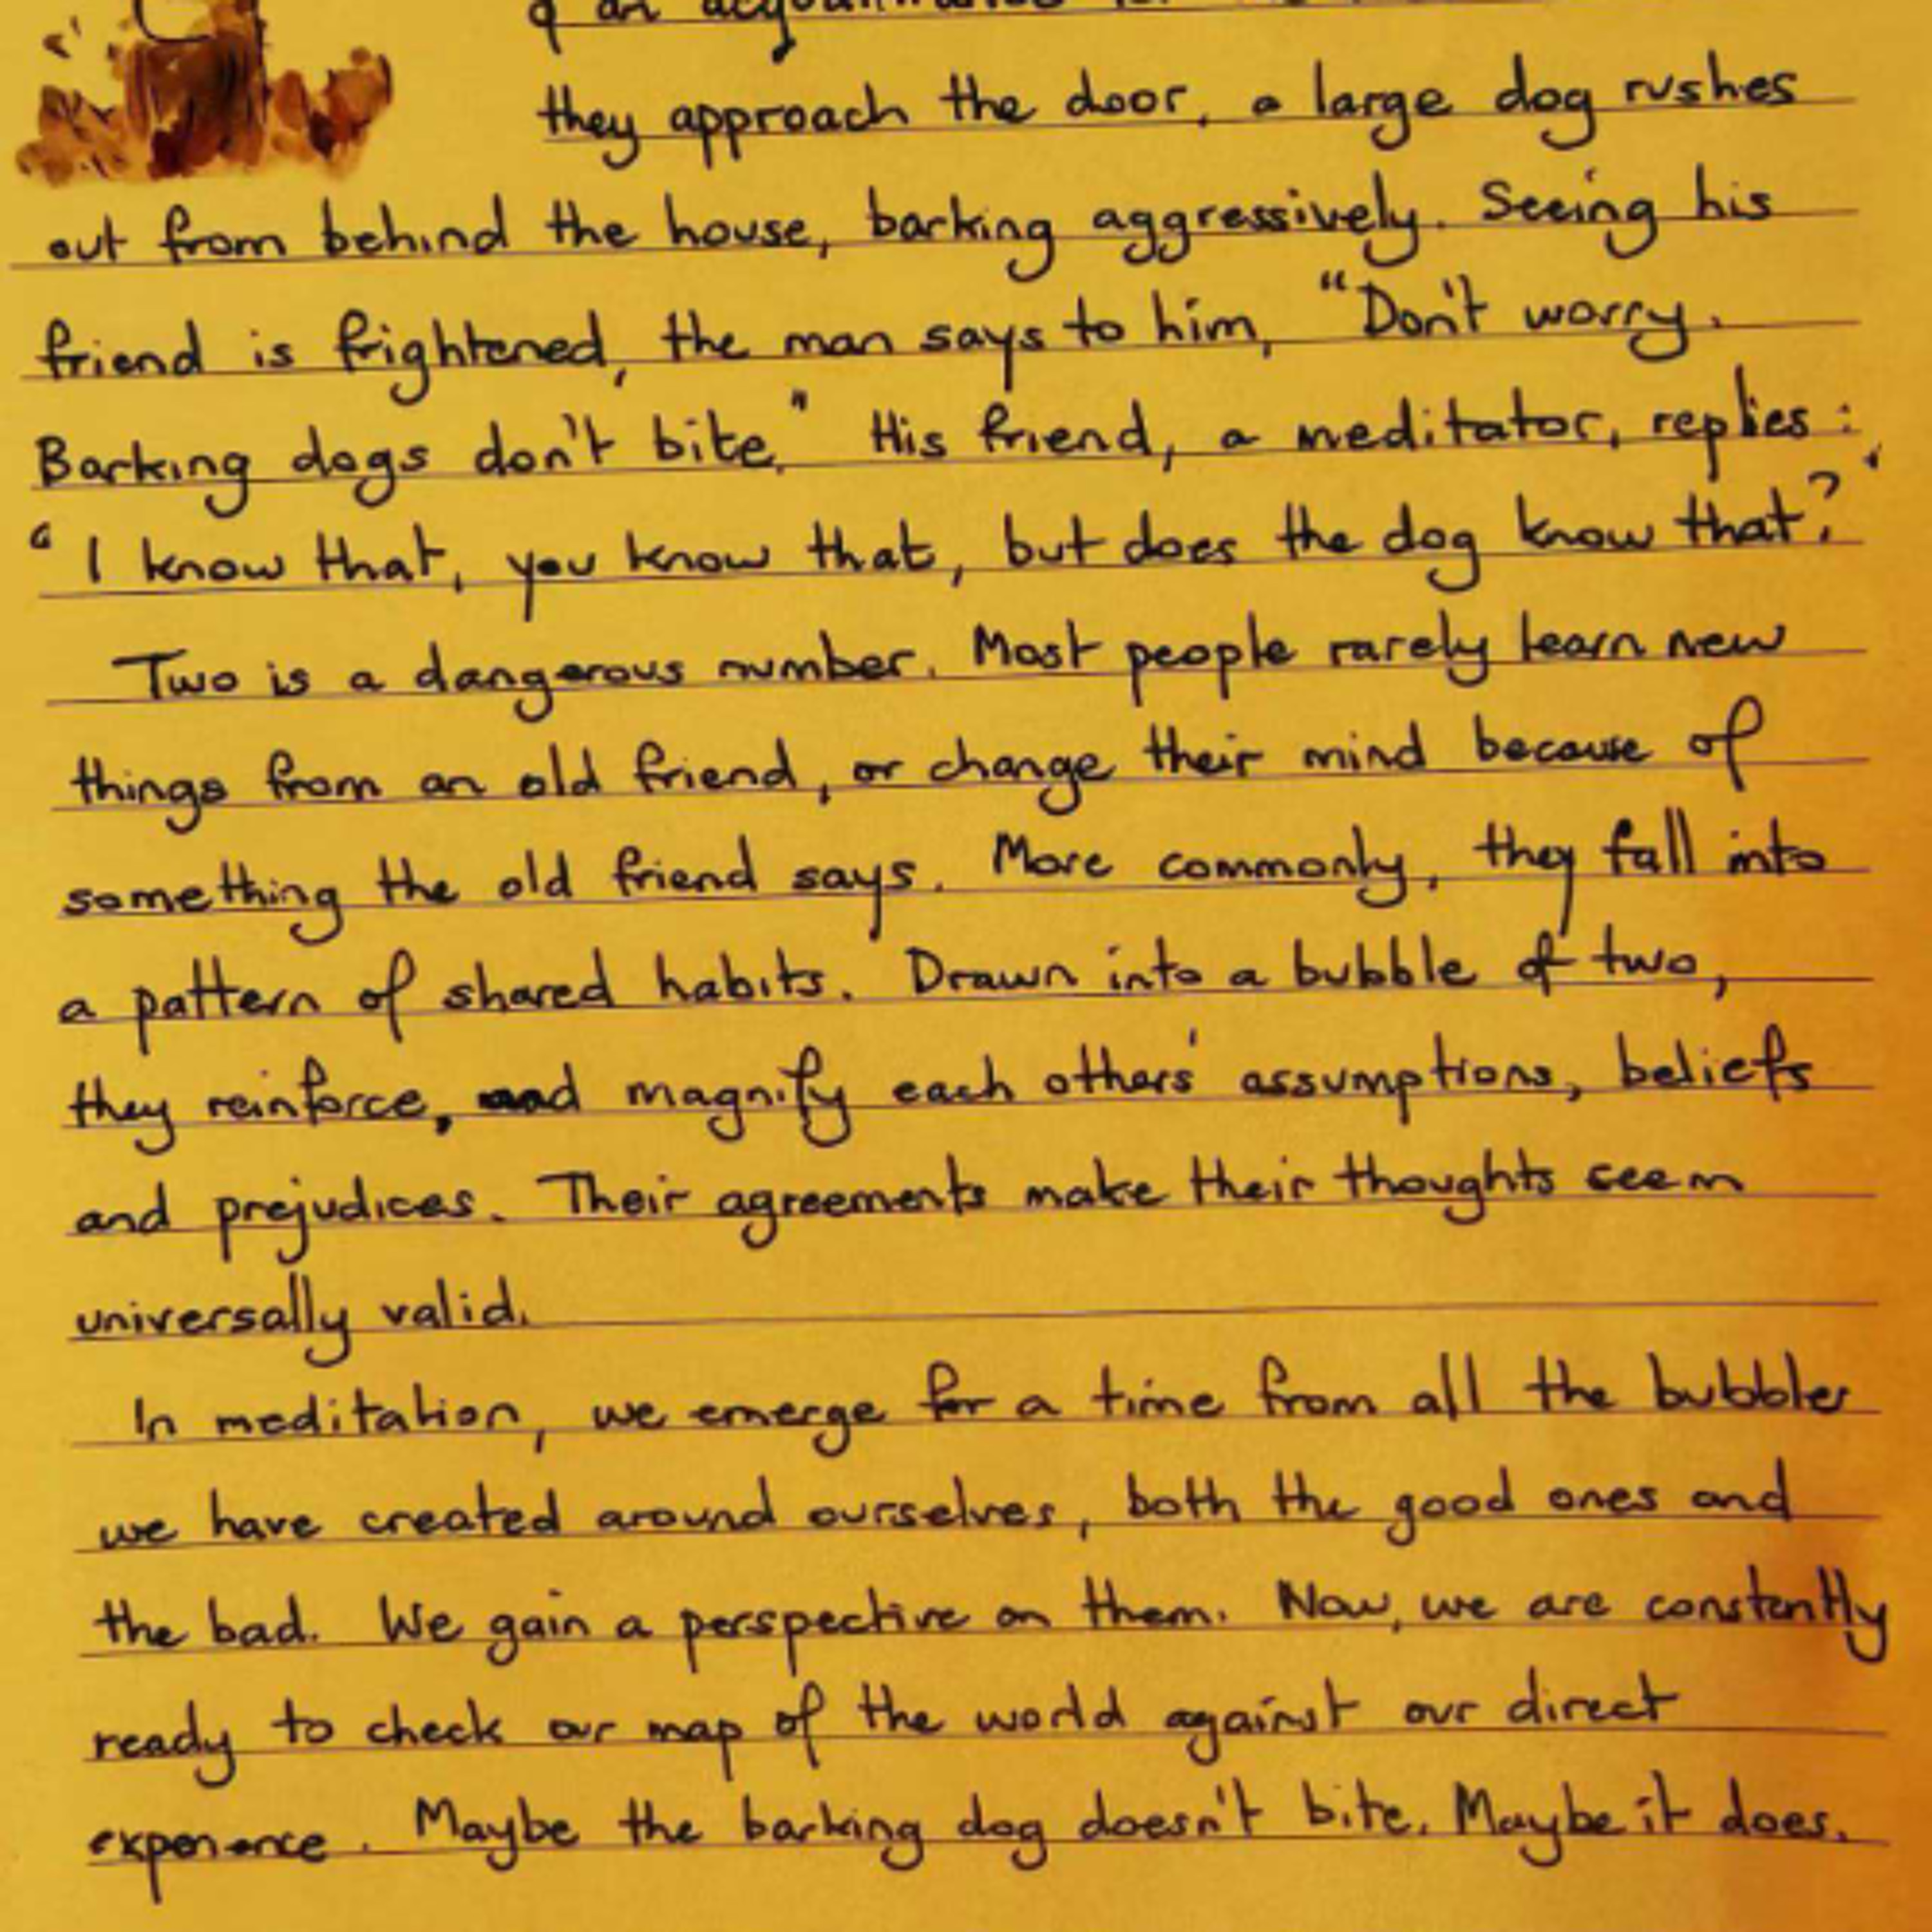 of an acquaintance
they approach the door, a large dog rushes
out from behind the house, barking aggressively. Seeing his
friend is frightened, the man says to him, "Don't worry.
Barking dogs don't bite." His friend, a meditator, replies:
"I know that, you know that, but does the dog know that?"
Two is a dangerous number. Most people rarely learn new
things from an old friend, or change their mind because of
something the old friend says. More commonly, they fall into
a pattern of shared habits. Drawn into a bubble of two,
they reinforce, and magnify each others' assumptions, beliefs
and prejudices. Their agreements make their thoughts seem
universally valid.
In meditation, we emerge for a time from all the bubbles
we have created around ourselves, both the good ones and
the bad. We gain a perspective on them. Now, we are constantly
ready to check our map of the world against our direct
experience. Maybe the barking dog doesn't bite. Maybe it does.